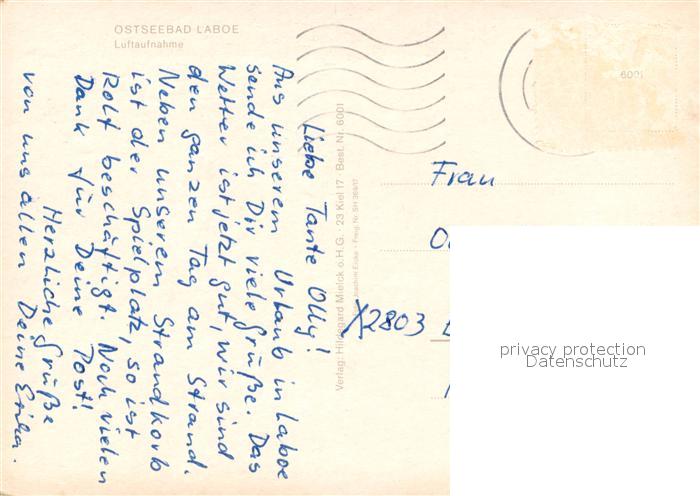 OSTSEEBAD LABOE
Luftaufnahme
Liebe Tante Olly!
Aus unserem Urlaub in Laboe
sende ich Dir viele Grüße. Das
Wetter ist jetzt gut, wir sind
den ganzen Tag am Strand.
Neben unserem Strandkorb
ist der Spielplatz, so ist
Rolf beschäftigt. Noch vielen
Dank für Deine Post!
Herzliche Grüße
von uns allen Deine Erika.
Verlag: Hildegard Mielck o.H.G. · 23 Kiel 17 · Best. Nr. 6001
Freig. Nr. SH
6001
Frau
2803
privacy protection
Datenschutz